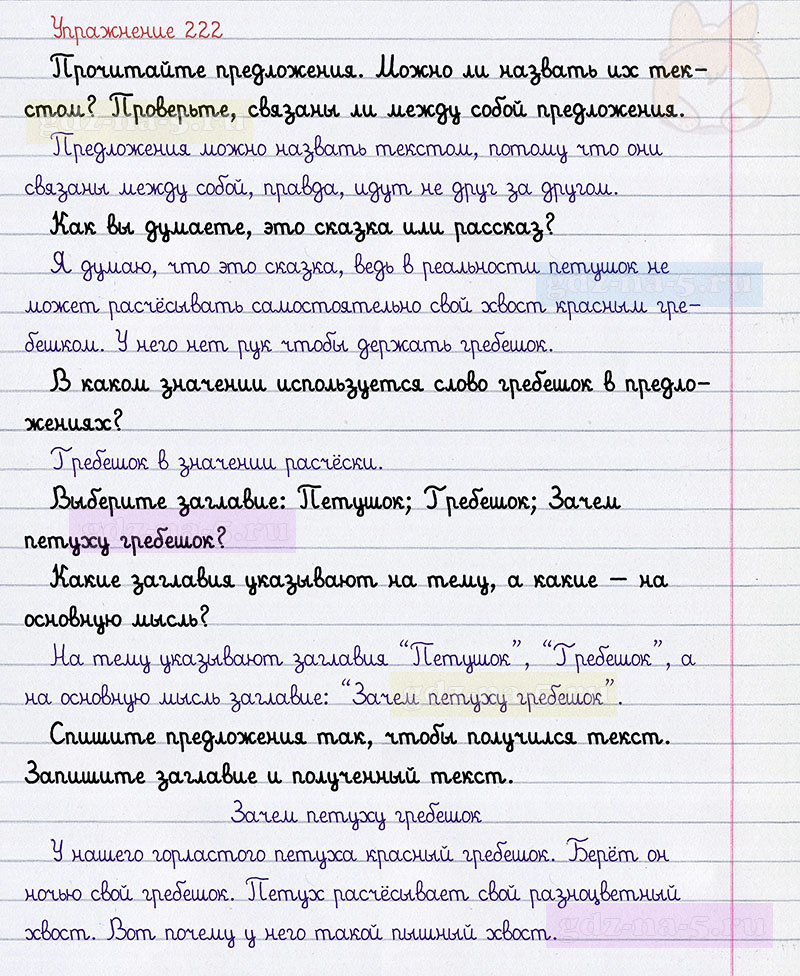 Упражнение 222
Прочитайте предложения. Можно ли назвать их тек-
стом? Проверьте, связаны ли между собой предложения.
gdz-na-5.ru
Предложения можно назвать текстом, потому что они
связаны между собой, правда, идут не друг за другом.
Как вы думаете, это сказка или рассказ?
Я думаю, что это сказка, ведь в реальности петушок не
gdz-na-5.ru
может расчёсывать самостоятельно свой хвост красным гре-
бешком. У него нет рук чтобы держать гребешок.
В каком значении используется слово гребешок в предло-
жениях?
Гребешок в значении расчёски.
Выберите заглавие: Петушок; Гребешок; Зачем
петуху гребешок?
gdz-na-5.ru
Какие заглавия указывают на тему, а какие – на
основную мысль?
На тему указывают заглавия “Петушок”, “Гребешок”, а
на основную мысль заглавие: “Зачем петуху гребешок”.
gdz-na-5.ru
Спишите предложения так, чтобы получился текст.
Запишите заглавие и полученный текст.
Зачем петуху гребешок
У нашего горластого петуха красный гребешок. Берёт он
ночью свой гребешок. Петух расчёсывает свой разноцветный
хвост. Вот почему у него такой пышный хвост.
gdz-na-5.ru